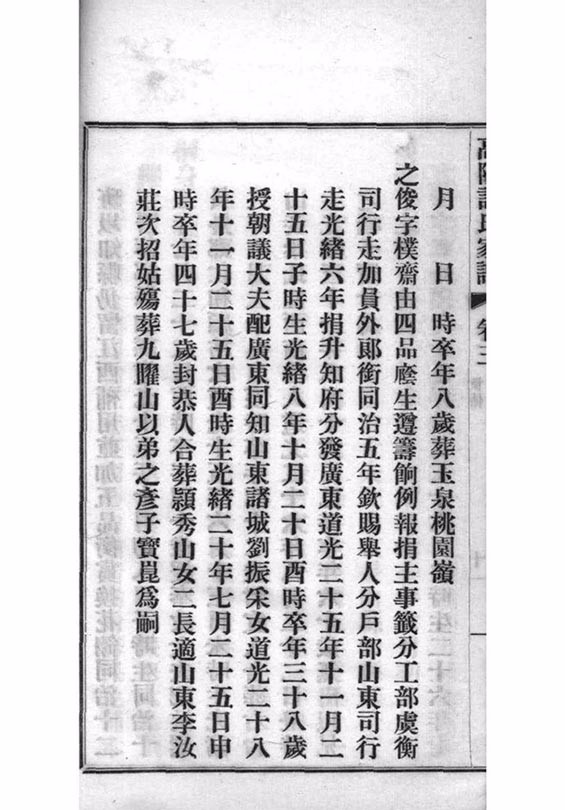 高陽許氏家譜 卷三
月 日 時卒年八歲葬玉泉桃園嶺
之俊字樸齋由四品廕生遵籌餉例報捐主事籤分工部虞衡
司行走加員外郎銜同治五年欽賜舉人分戶部山東司行
走光緒六年捐升知府分發廣東道光二十五年十一月二
十五日子時生光緒八年十月二十日酉時卒年三十八歲
授朝議大夫配廣東同知山東諸城劉振采女道光二十八
年十一月二十五日酉時生光緒二十年七月二十五日申
時卒年四十七歲封恭人合葬頴秀山女二長適山東李汝
莊次招姑殤葬九曜山以弟之彥子寶崑為嗣